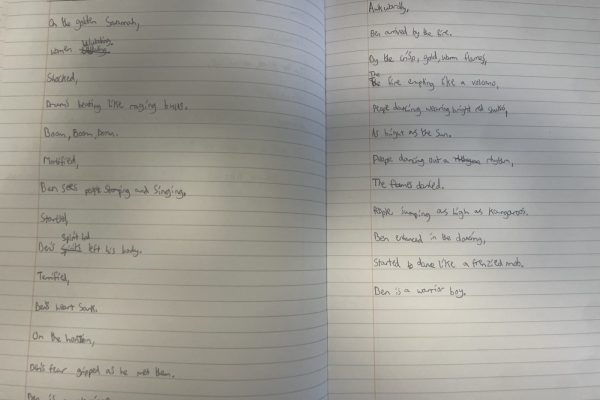 On the golden Savannah,
women Ululating.
Shocked,
Drums beating like raging bulls.
Boom, Boom, Boom.
Mortified,
Ben sees people Stomping and Singing,
Startled,
Ben's Spirit had left his body.
Terrified,
Ben's heart Sank.
On the horizon,
Ben's fear gripped as he met them.
Ben is a
Awkwardly,
Ben arrived by the fire.
By the crisp, gold, warm flames,
The fire erupting like a volcano,
People dancing wearing bright red shukas,
As bright as the Sun.
People dancing out a rhythm,
The flames danced.
People jumping as high as Kangaroos.
Ben entranced in the dancing,
Started to dance like a frenzied mob.
Ben is a warrior boy.